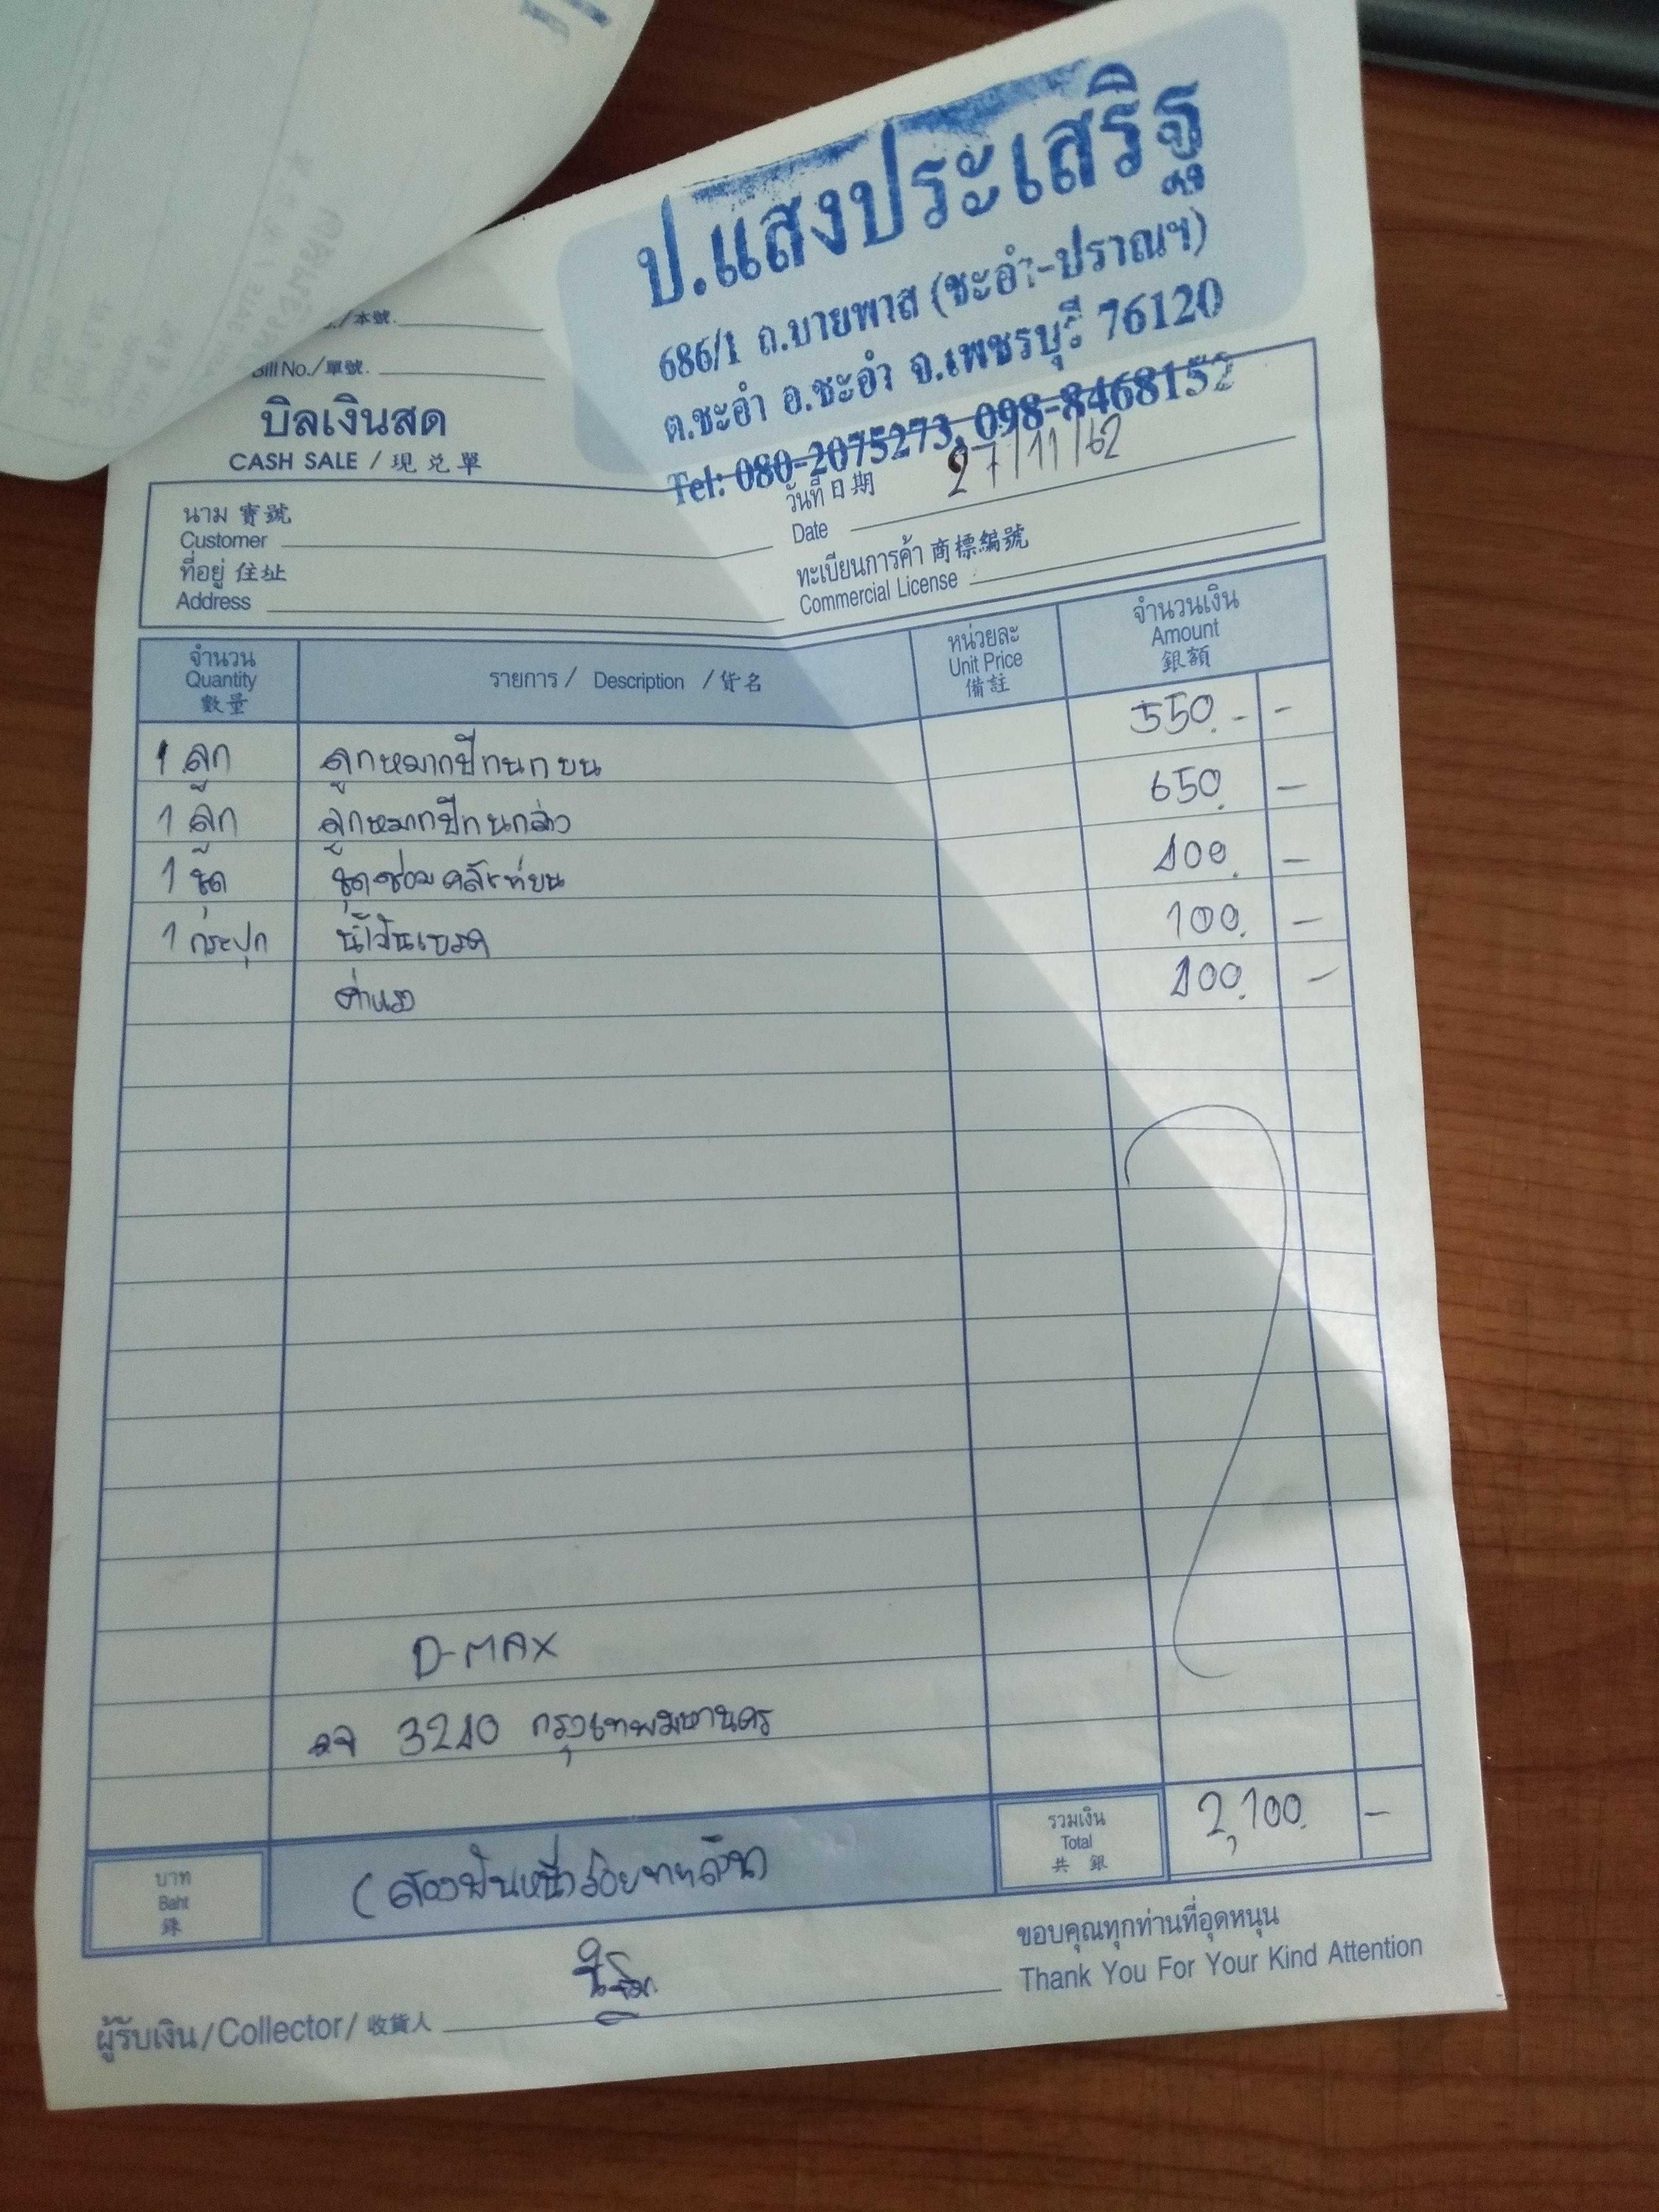 ป.แสงประเสริฐ
686/1 ถ.บายพาส (ชะอำ-ปราณฯ)
ต.ชะอำ อ.ชะอำ จ.เพชรบุรี 76120
Tel: 080-2075273, 098-8468152
/本號.
Bill No./單號.
บิลเงินสด
CASH SALE / 現兌單
นาม 寶號
Customer
ที่อยู่ 住址
Address
วันที่ 日期
Date 27/11/62
ทะเบียนการค้า 商標編號
Commercial License
จำนวน Quantity 數量
รายการ / Description / 貨名
หน่วยละ Unit Price 備註
จำนวนเงิน Amount 銀額
1 ลูก ลูกหมากปีกนกบน 550.- -
1 ลูก ลูกหมากปีกนกล่าง 650. -
1 ชุด ชุดซ่อมคลัทช์บน 400. -
1 กระปุก น้ำมันเบรค 100. -
ค่าแรง 400. -
D-MAX
3240 กรุงเทพมหานคร
บาท Baht 銖
(สองพันหนึ่งร้อยบาทถ้วน)
รวมเงิน Total 共銀 2,100. -
ขอบคุณทุกท่านที่อุดหนุน
Thank You For Your Kind Attention
ผู้รับเงิน/Collector/收貨人